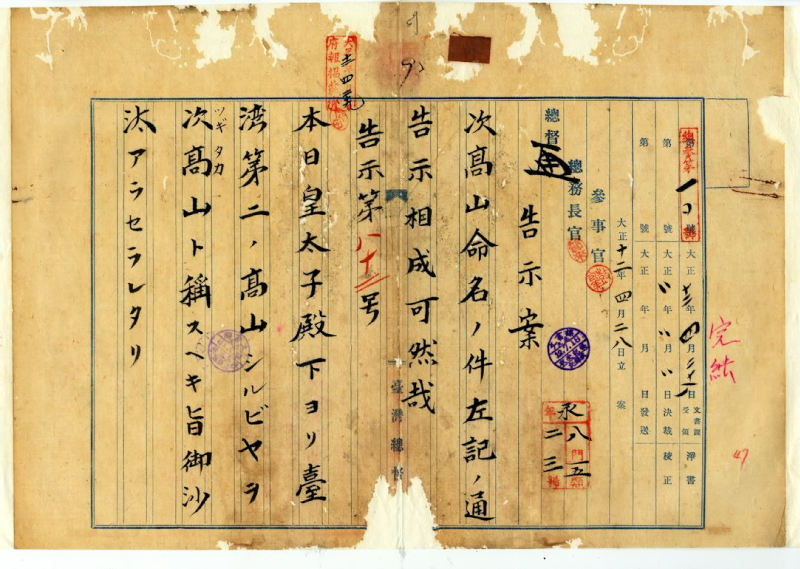 完結
第 號 大正 年 月 日 文書課受領 淨書
第 號 大正 年 月 日決裁 校正
第 號 大正 年 月 日發送
大正十二年四月二八日立案
參事官
總務長官
總督
永
八門五類
二三
告示案
次高山命名ノ件左記ノ通
告示相成可然哉
臺灣總督
告示第八十三号
本日皇太子殿下ヨリ臺
湾第二ノ高山シルビヤヲ
次高山ト稱スヘキ旨御沙
ツギタカ
汰アラセラレタリ